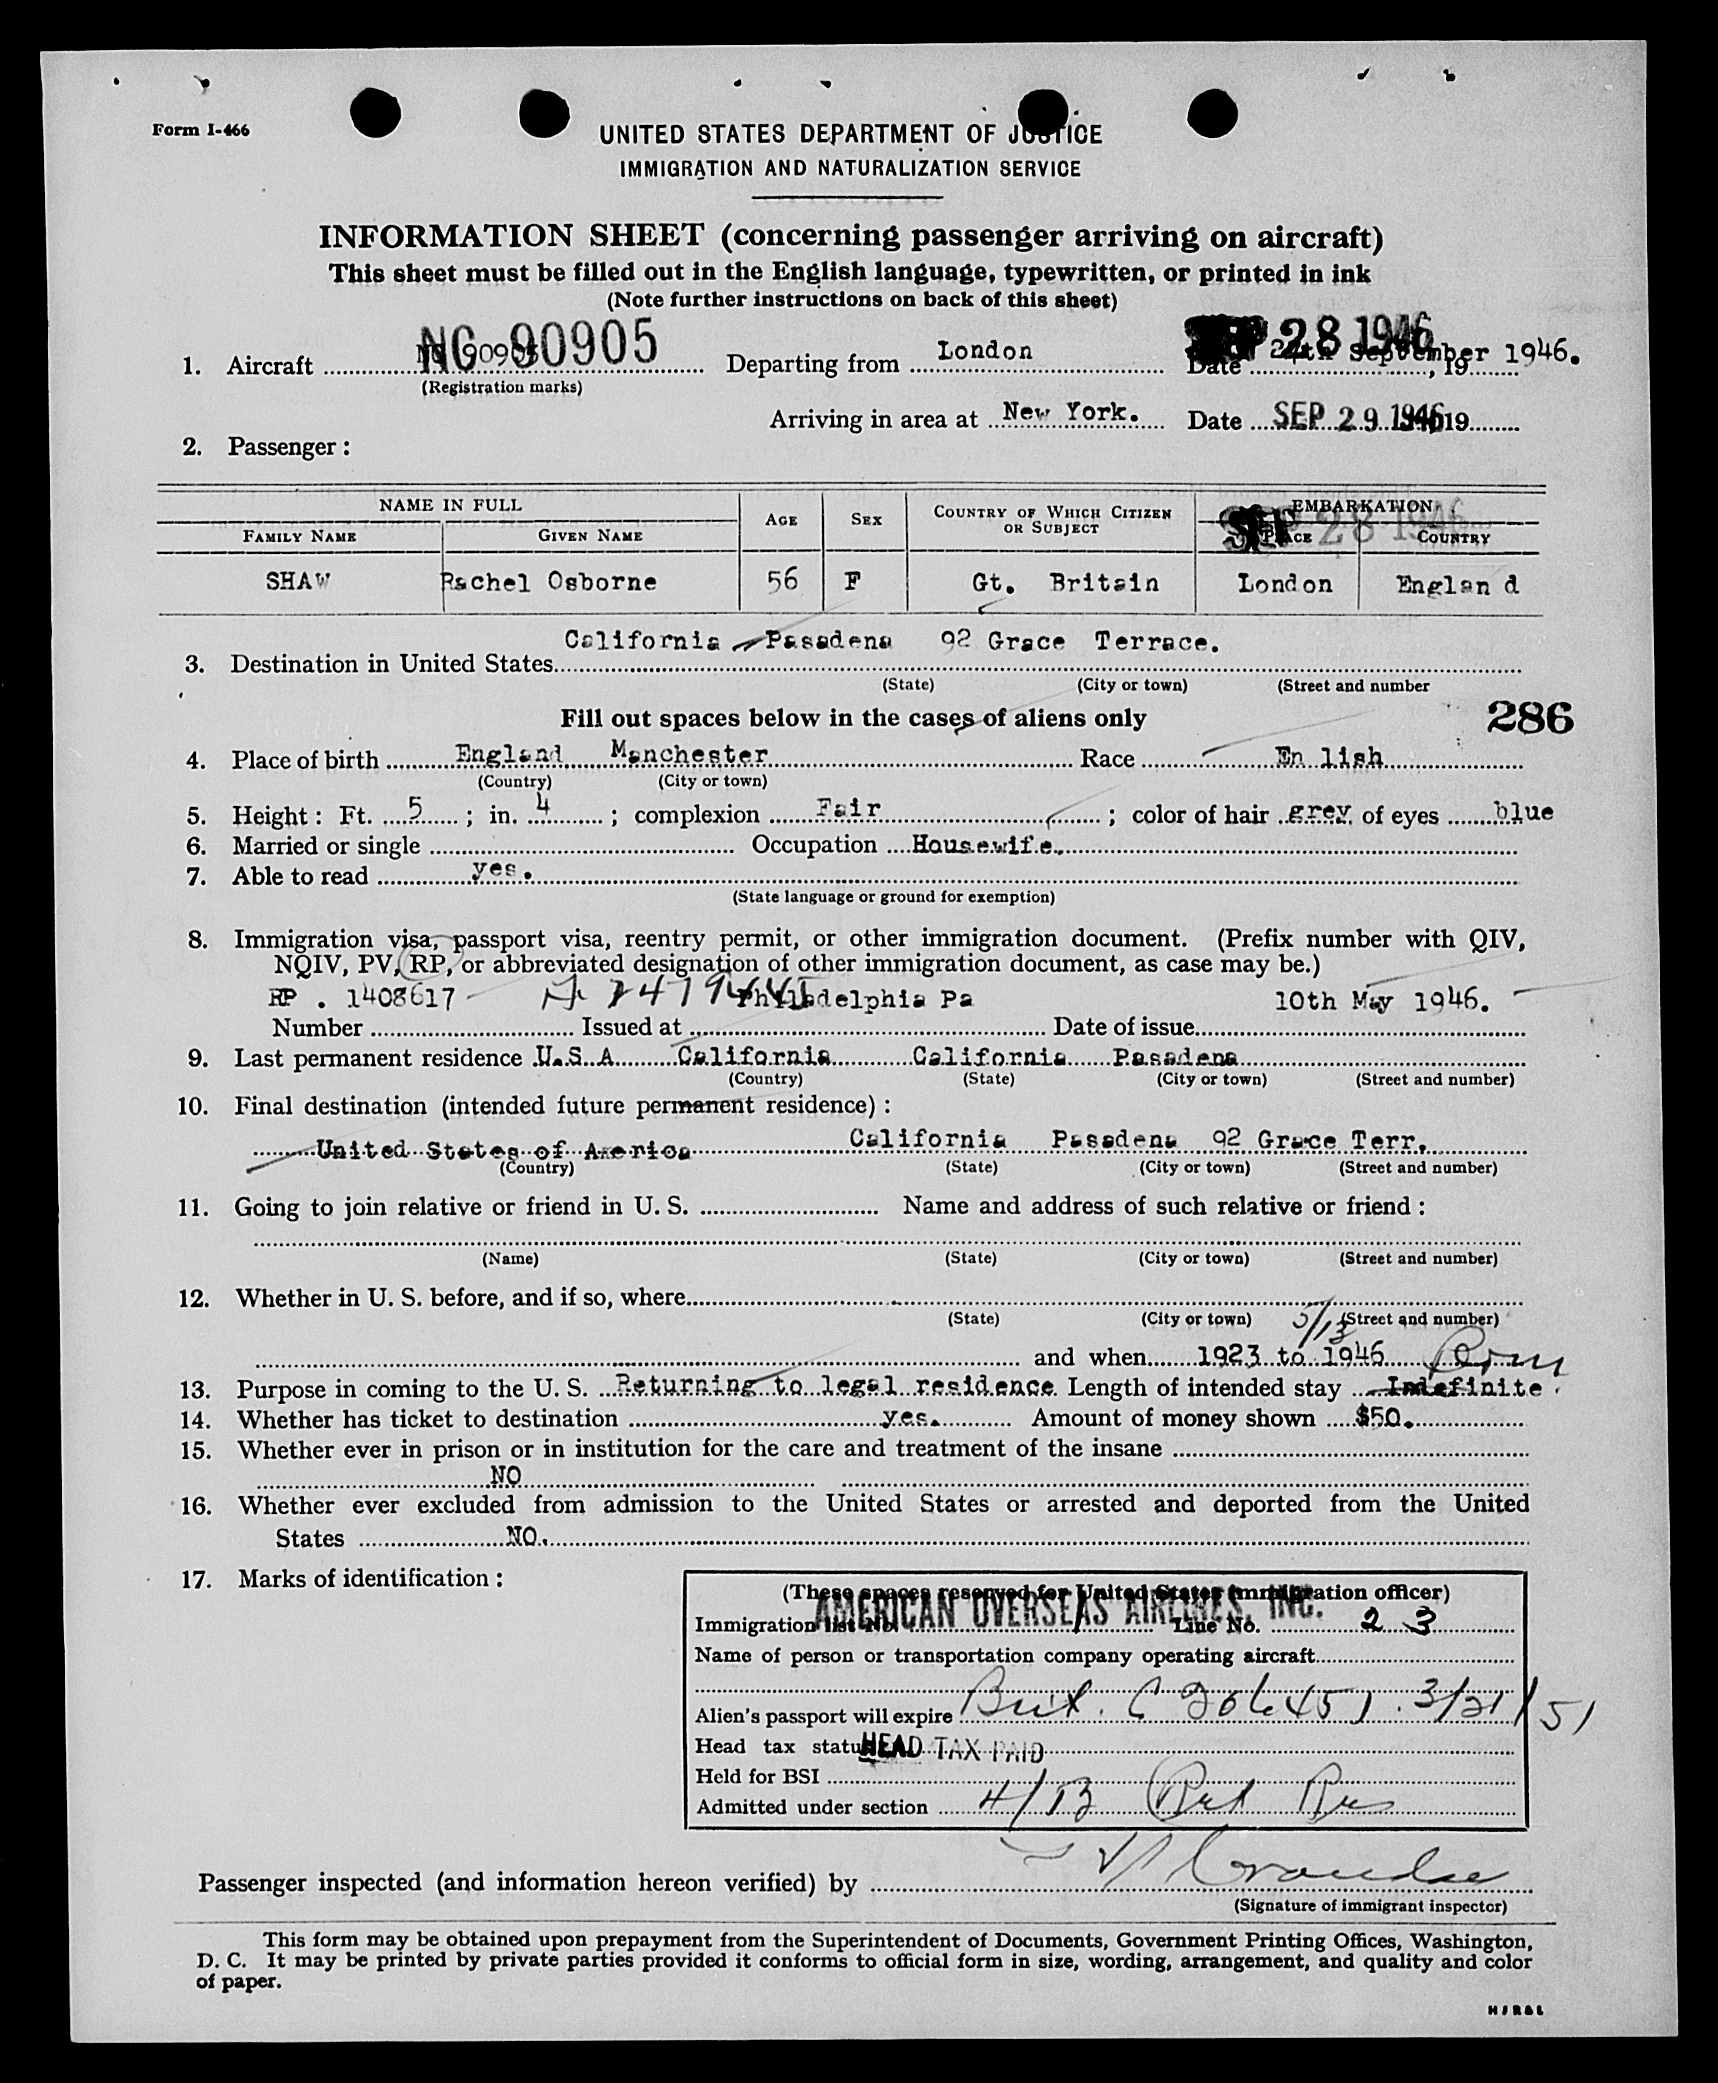 Form I-466
UNITED STATES DEPARTMENT OF JUSTICE
IMMIGRATION AND NATURALIZATION SERVICE
INFORMATION SHEET (concerning passenger arriving on aircraft)
This sheet must be filled out in the English language, typewritten, or printed in ink
(Note further instructions on back of this sheet)
1. Aircraft NC 90905 Departing from London Date SEP 28 1946 September 1946. , 19
(Registration marks)
Arriving in area at New York. Date SEP 29 1946 19
2. Passenger:
NAME IN FULL AGE SEX COUNTRY OF WHICH CITIZEN OR SUBJECT EMBARKATION SEP 28 1946
FAMILY NAME GIVEN NAME PLACE COUNTRY
SHAW Rachel Osborne 56 F Gt. Britain London Englan d
California - Pasadena 92 Grace Terrace.
3. Destination in United States
(State) (City or town) (Street and number
Fill out spaces below in the cases of aliens only 286
4. Place of birth England Manchester Race En lish
(Country) (City or town)
5. Height: Ft. 5 ; in. 4 ; complexion Fair ; color of hair grey of eyes blue
6. Married or single Occupation Housewife.
7. Able to read yes.
(State language or ground for exemption)
8. Immigration visa, passport visa, reentry permit, or other immigration document. (Prefix number with QIV,
NQIV, PV, RP, or abbreviated designation of other immigration document, as case may be.)
RP . 1408617 Philadelphia Pa 10th May 1946.
Number Issued at Date of issue
9. Last permanent residence U.S.A. California California Pasadena
(Country) (State) (City or town) (Street and number)
10. Final destination (intended future permanent residence):
United States of America California Pasadena 92 Grace Terr.
(Country) (State) (City or town) (Street and number)
11. Going to join relative or friend in U. S. Name and address of such relative or friend:
(Name) (State) (City or town) (Street and number)
12. Whether in U. S. before, and if so, where
(State) (City or town) 5/13 (Street and number)
and when 1923 to 1946
13. Purpose in coming to the U. S. Returning to legal residence Length of intended stay Indefinite.
14. Whether has ticket to destination yes. Amount of money shown $50.
15. Whether ever in prison or in institution for the care and treatment of the insane
NO
16. Whether ever excluded from admission to the United States or arrested and deported from the United
States NO.
17. Marks of identification:
(These spaces reserved for United States immigration officer)
AMERICAN OVERSEAS AIRLINES, INC.
Immigration list No. 1 Line No. 2 3
Name of person or transportation company operating aircraft
Alien's passport will expire Brit. C 206451 . 3/21/51
Head tax status HEAD TAX PAID
Held for BSI
Admitted under section 4/B Ret Res
Passenger inspected (and information hereon verified) by
(Signature of immigrant inspector)
This form may be obtained upon prepayment from the Superintendent of Documents, Government Printing Offices, Washington,
D. C. It may be printed by private parties provided it conforms to official form in size, wording, arrangement, and quality and color
of paper.